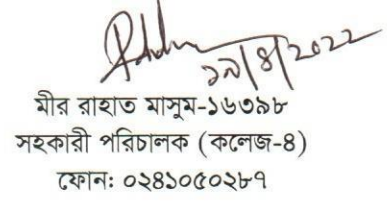 ১৯/৪/২০২২
মীর রাহাত মাসুম-১৬৩৯৮
সহকারী পরিচালক (কলেজ-৪)
ফোন: ০২৪১০৫০২৮৭